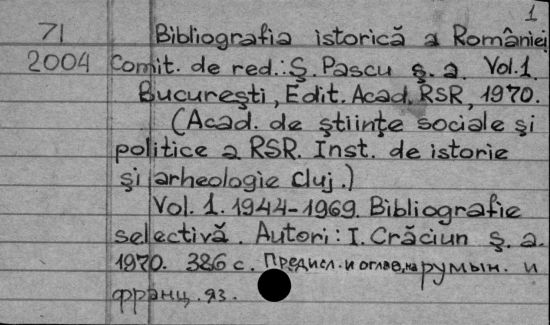 1
71 Bibliografia istorică a României
2004 Comit. de red.: Ş. Pascu ş. a. Vol. 1.
Bucureşti, Edit. Acad. RSR, 1970.
(Acad. de ştiinţe sociale şi
politice a RSR. Inst. de istorie
şi arheologie Cluj.)
Vol. 1. 1944-1969. Bibliografie
selectivă. Autori: I. Crăciun ş. a.
1970. 386 с. Предисл. и оглав. на румын. и
франц. яз.